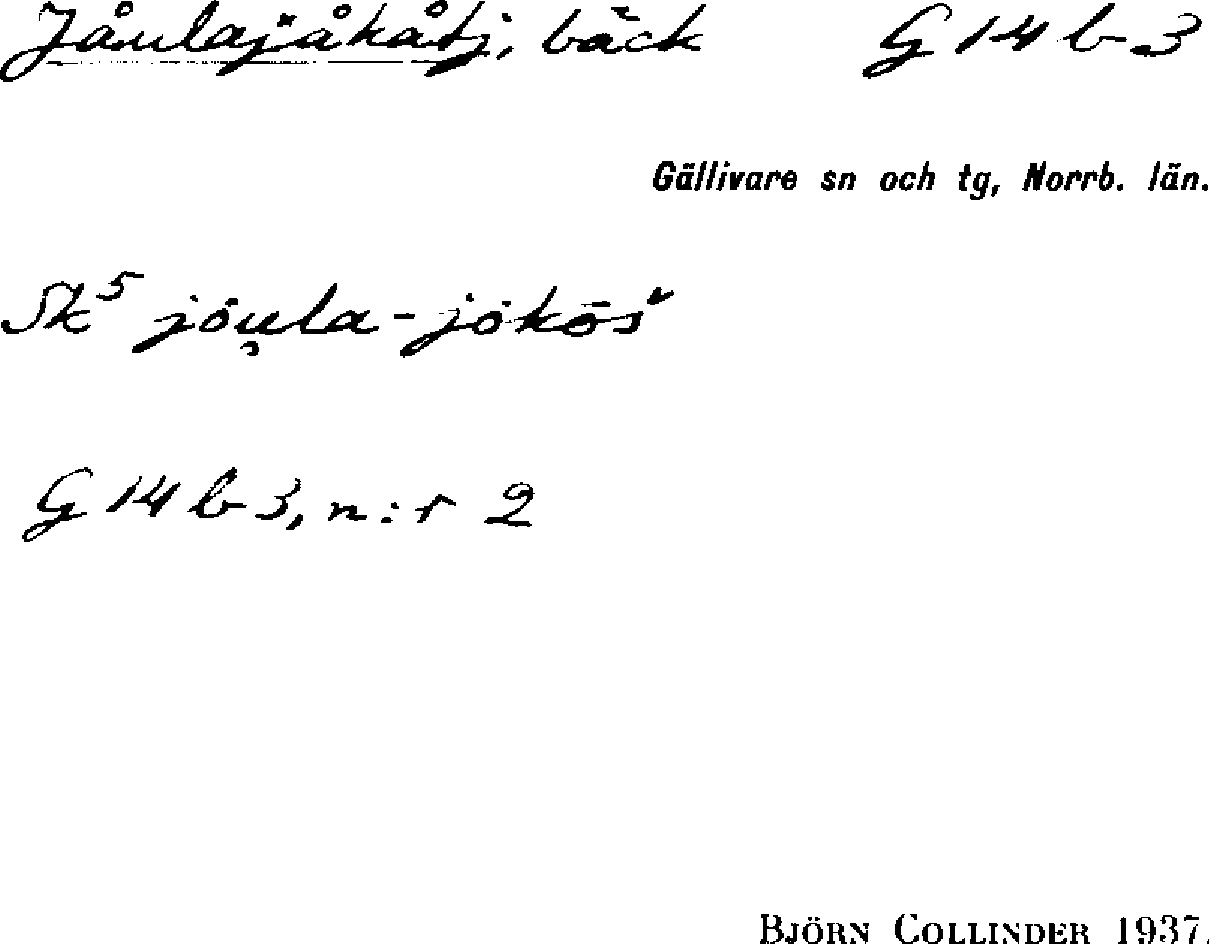 Jåulajåkåtj, bäck G 14 b 3
Gällivare sn och tg, Norrb. län.
Sk⁵ jou̯la-jokōš
G 14 b 3, n:r 2
BJÖRN COLLINDER 1937.